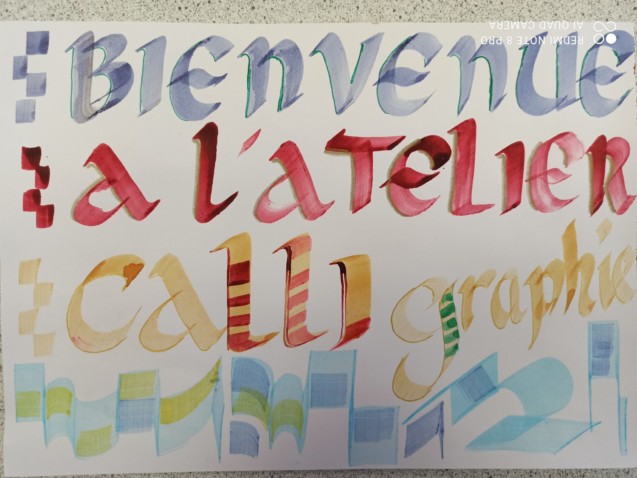 BIENVENUE
A L'ATELIER
CALLI graphie
REDMI NOTE 8 PRO
AI QUAD CAMERA